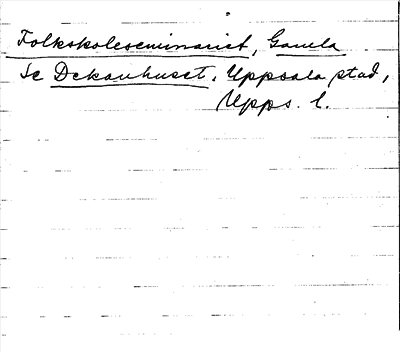 Folkskoleseminariet, Gamla
Se Dekanhuset, Uppsala stad,
Upps. l.